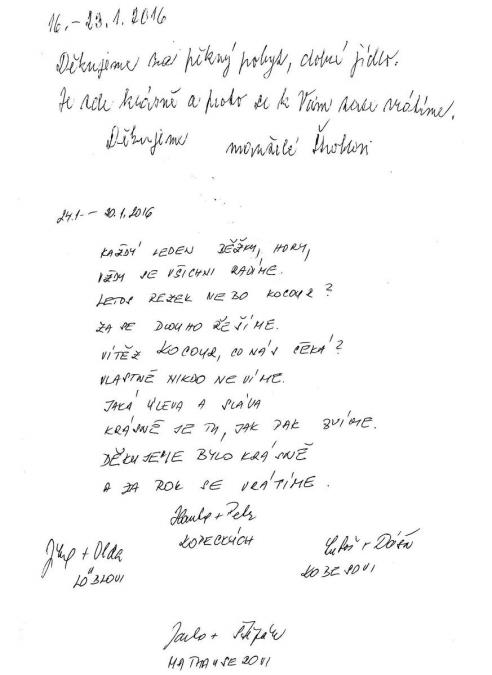 16.-23.1.2016
Děkujeme za pěkný pobyt, dobré jídlo.
Je zde krásně a proto se k Vám zase vrátíme.
Děkujeme manželé
24.1.-30.1.2016
KAŽDÝ LEDEN BĚŽKY, HORY,
VŽDY SE VŠICHNI RADÍME.
LETOS REZEK NEBO KOCOUR?
ZA SE DLOUHO ŘEŠÍME.
VÍTĚZ KOCOUR, CO NÁS ČEKÁ?
VLASTNĚ NIKDO NEVÍME.
JAKÁ ÚLEVA A SLÁVA
KRÁSNĚ JE TU, JAK PAK ZVÍME.
DĚKUJEME BYLO KRÁSNĚ
A ZA ROK SE VRÁTÍME.
Hanka + Petr
KOPECKÝCH
Jitka + Olda
LÖBLOVI
Luboš + Dáša
KOBESOVI
+ Štěpán
MATHAUSEROVI